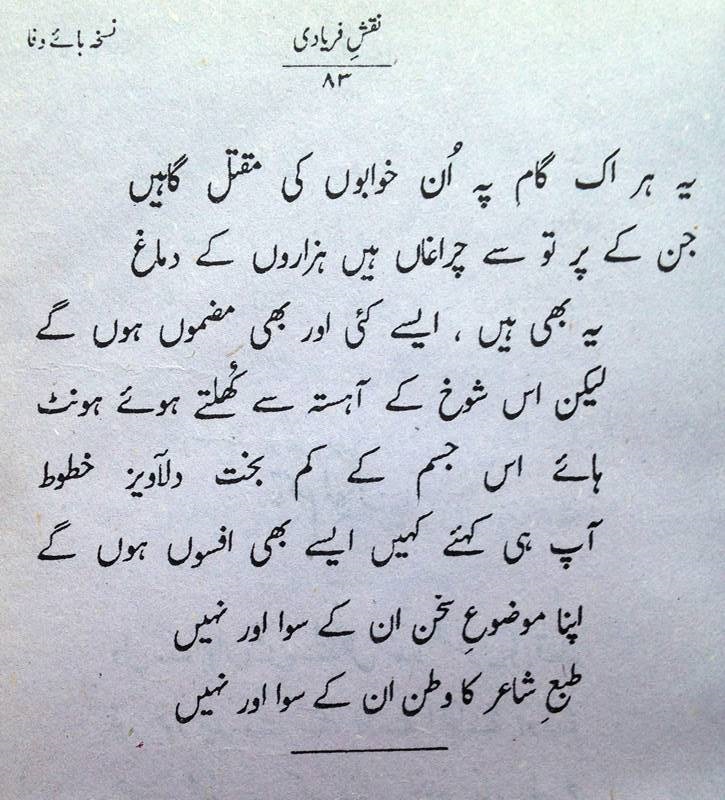 نسخہ ہائے وفا
نقشِ فریادی
۸۳
یہ ہر اک گام پہ اُن خوابوں کی مقتل گاہیں
جن کے پر تو سے چراغاں ہیں ہزاروں کے دماغ
یہ بھی ہیں ، ایسے کئی اور بھی مضموں ہوں گے
لیکن اس شوخ کے آہستہ سے کُھلتے ہوئے ہونٹ
ہائے اس جسم کے کم بخت دلآویز خطوط
آپ ہی کہئے کہیں ایسے بھی افسوں ہوں گے
اپنا موضوعِ سخن ان کے سوا اور نہیں
طبعِ شاعر کا وطن ان کے سوا اور نہیں